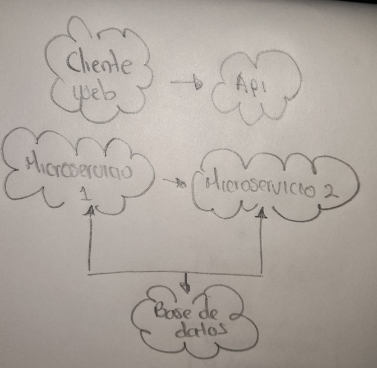 Cliente
web
Api
Microservicio
1
Microservicio 2
Base de
datos